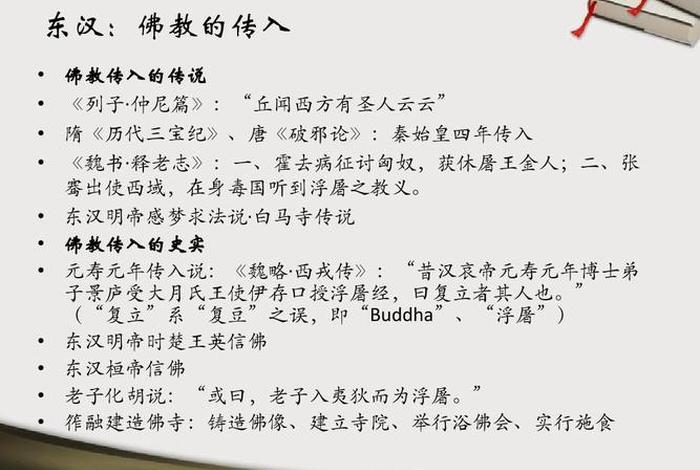 东汉：佛教的传入
• 佛教传入的传说
• 《列子·仲尼篇》：“丘闻西方有圣人云云”
• 隋《历代三宝纪》、唐《破邪论》：秦始皇四年传入
• 《魏书·释老志》：一、霍去病征讨匈奴，获休屠王金人；二、张
骞出使西域，在身毒国听到浮屠之教义。
• 东汉明帝感梦求法说·白马寺传说
• 佛教传入的史实
• 元寿元年传入说：《魏略·西戎传》：“昔汉哀帝元寿元年博士弟
子景庐受大月氏王使伊存口授浮屠经，曰复立者其人也。”
（“复立”系“复豆”之误，即“Buddha”、“浮屠”）
• 东汉明帝时楚王英信佛
• 东汉桓帝信佛
• 老子化胡说：“或曰，老子入夷狄而为浮屠。”
• 笮融建造佛寺：铸造佛像、建立寺院、举行浴佛会、实行施食